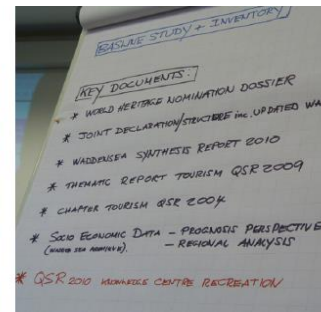 BASLINE STUDY + INVENTORY
KEY DOCUMENTS:
* WORLD HERITAGE NOMINATION DOSSIER
* JOINT DECLARATION/STRUCTURE inc. UPDATED WA
* WADDENSEA SYNTHESIS REPORT 2010
* THEMATIC REPORT TOURISM QSR 2009
* CHAPTER TOURISM QSR 2004
* SOCIO ECONOMIC DATA – PROGNOSIS PERSPECTIVE
– REGIONAL ANALYSIS
* QSR 2010 KNOWLEDGE CENTRE RECREATION